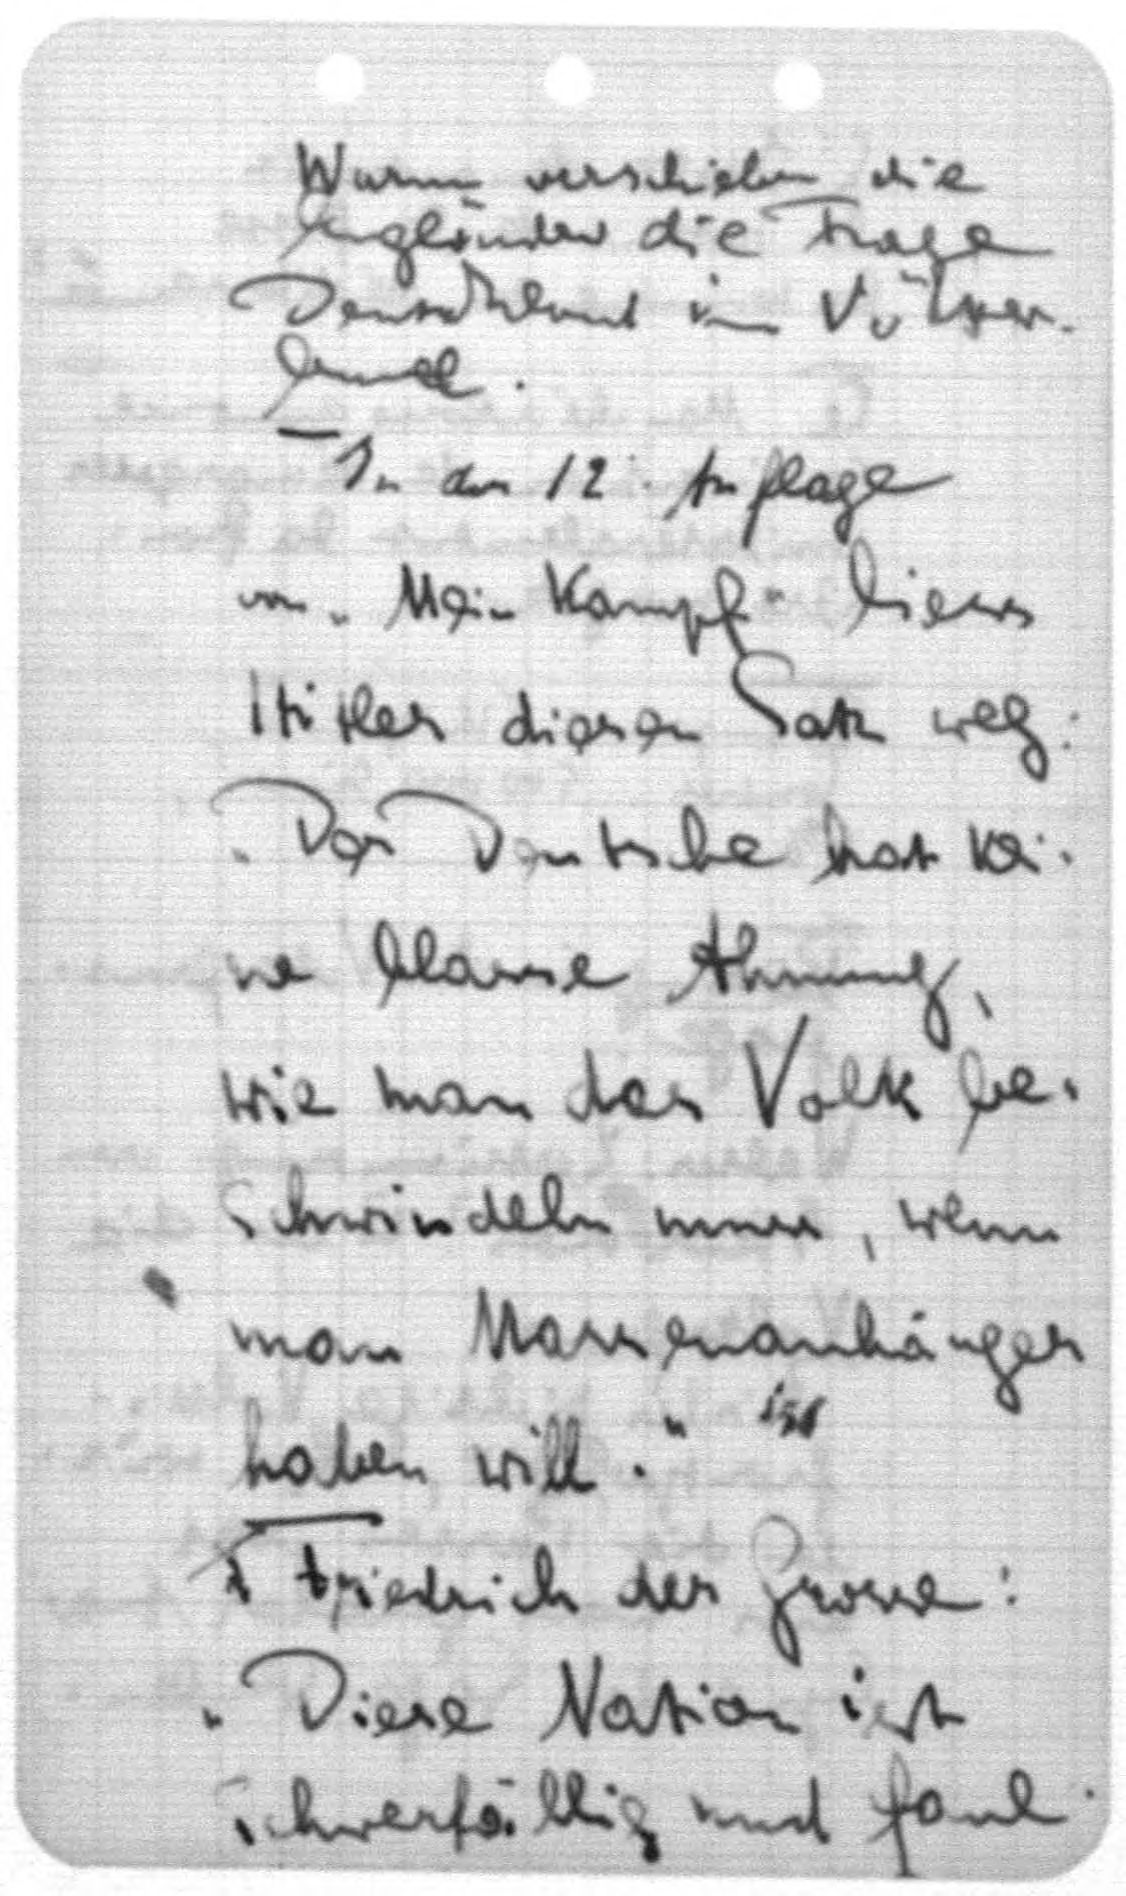 Warum verschieben die
Engländer die Frage
Deutschland im Völker-
bund.
In der 12. Auflage
von „Mein Kampf" liess
Hitler diesen Satz weg:
„Der Deutsche hat kei-
ne blasse Ahnung,
wie man das Volk be-
schwindeln muss, wenn
man Massenanhänger
haben will."
Friedrich der Grosse:
„Diese Nation ist
schwerfällig und faul.